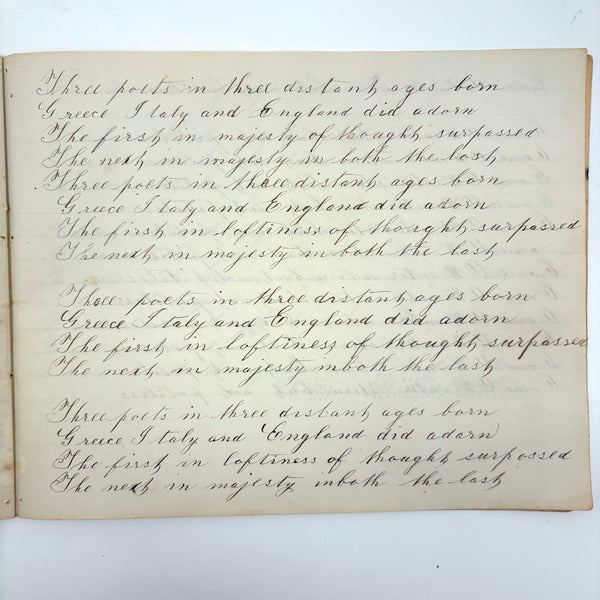 Three poets in three distant ages born
Greece Italy and England did adorn
The first in majesty of thought surpassed
The next in majesty in both the last
Three poets in three distant ages born
Greece Italy and England did adorn
The first in loftiness of thought surpassed
The next in majesty in both the last
Three poets in three distant ages born
Greece Italy and England did adorn
The first in loftiness of thought surpassed
The next in majesty inboth the last
Three poets in three distant ages born
Greece Italy and England did adorn
The first in loftiness of thought surpossed
The next in majesty inboth the last